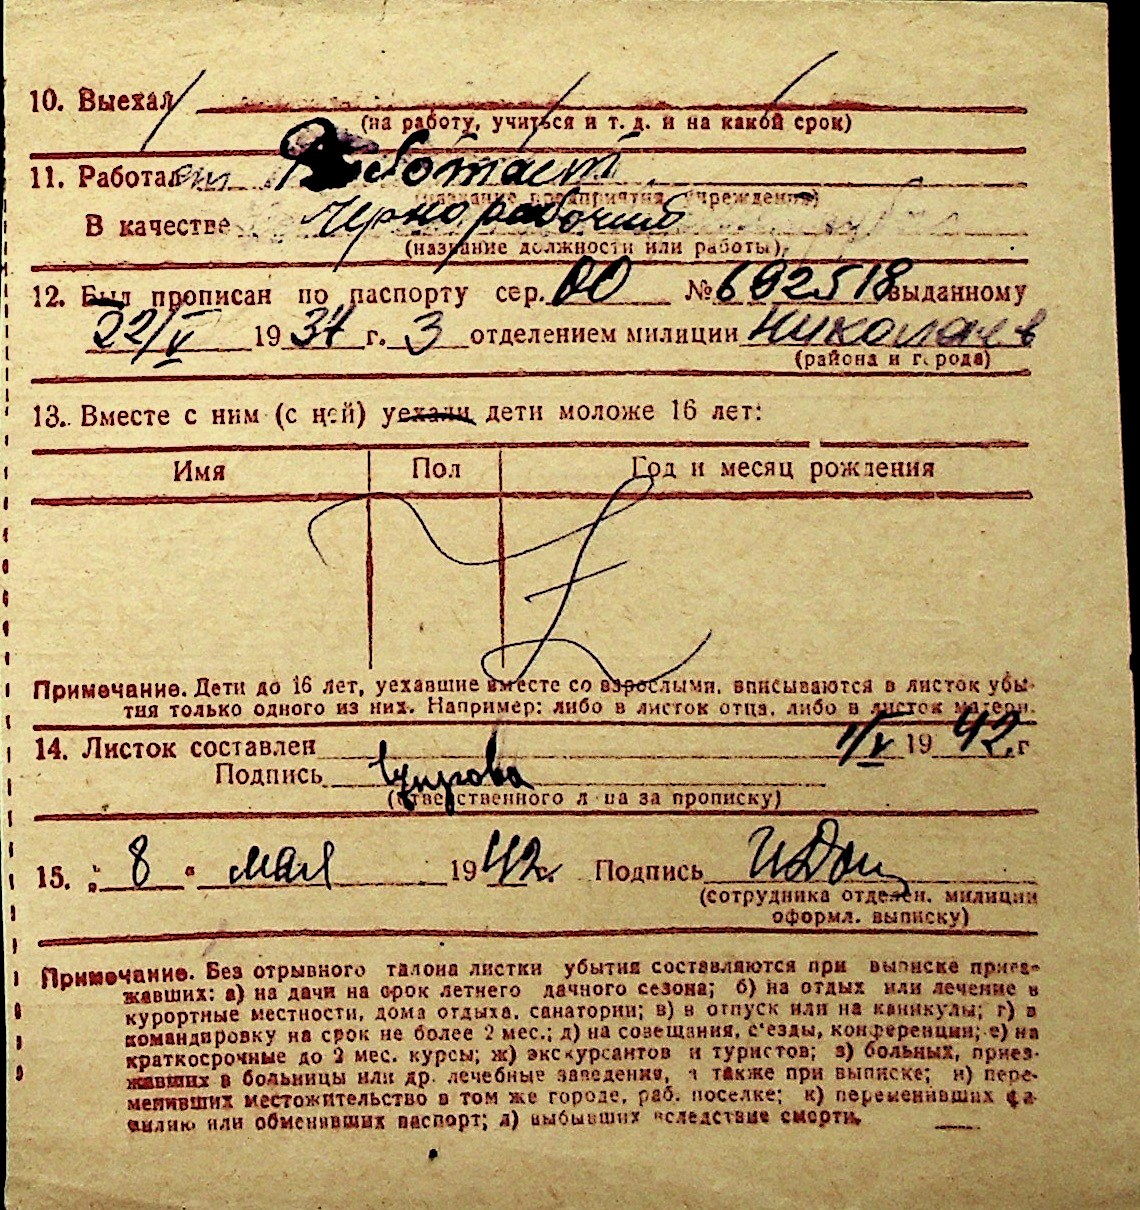 10. Выехал
(на работу, учиться и т. д. и на какой срок)
11. Работает Работает
(название предприятия учреждения)
В качестве Чернорабочий
(название должности или работы)
12. Был прописан по паспорту сер. ОО № 692518 выданному
22/V 1934 г. 3 отделением милиции Николаев
(района и города)
13. Вместе с ним (с ней) уехали дети моложе 16 лет:
Имя Пол Год и месяц рождения
Примечание. Дети до 16 лет, уехавшие вместе со взрослыми, вписываются в листок убы-
тия только одного из них. Например: либо в листок отца, либо в листок матери.
14. Листок составлен 1/V 1942 г
Подпись
(ответственного лица за прописку)
15. „ 8 " мая 1942 г. Подпись
(сотрудника отделен. милиции
оформл. выписку)
Примечание. Без отрывного талона листки убытия составляются при выписке приез-
жавших: а) на дачи на срок летнего дачного сезона; б) на отдых или лечение в
курортные местности, дома отдыха, санатории; в) в отпуск или на каникулы; г) в
командировку на срок не более 2 мес.; д) на совещания, с'езды, конференции; е) на
краткосрочные до 2 мес. курсы; ж) экскурсантов и туристов; з) больных, приез-
жавших в больницы или др. лечебные заведения, а также при выписке; и) пере-
менивших местожительство в том же городе, раб. поселке; к) переменивших фа-
милию или обменявших паспорт; л) выбывших вследствие смерти.